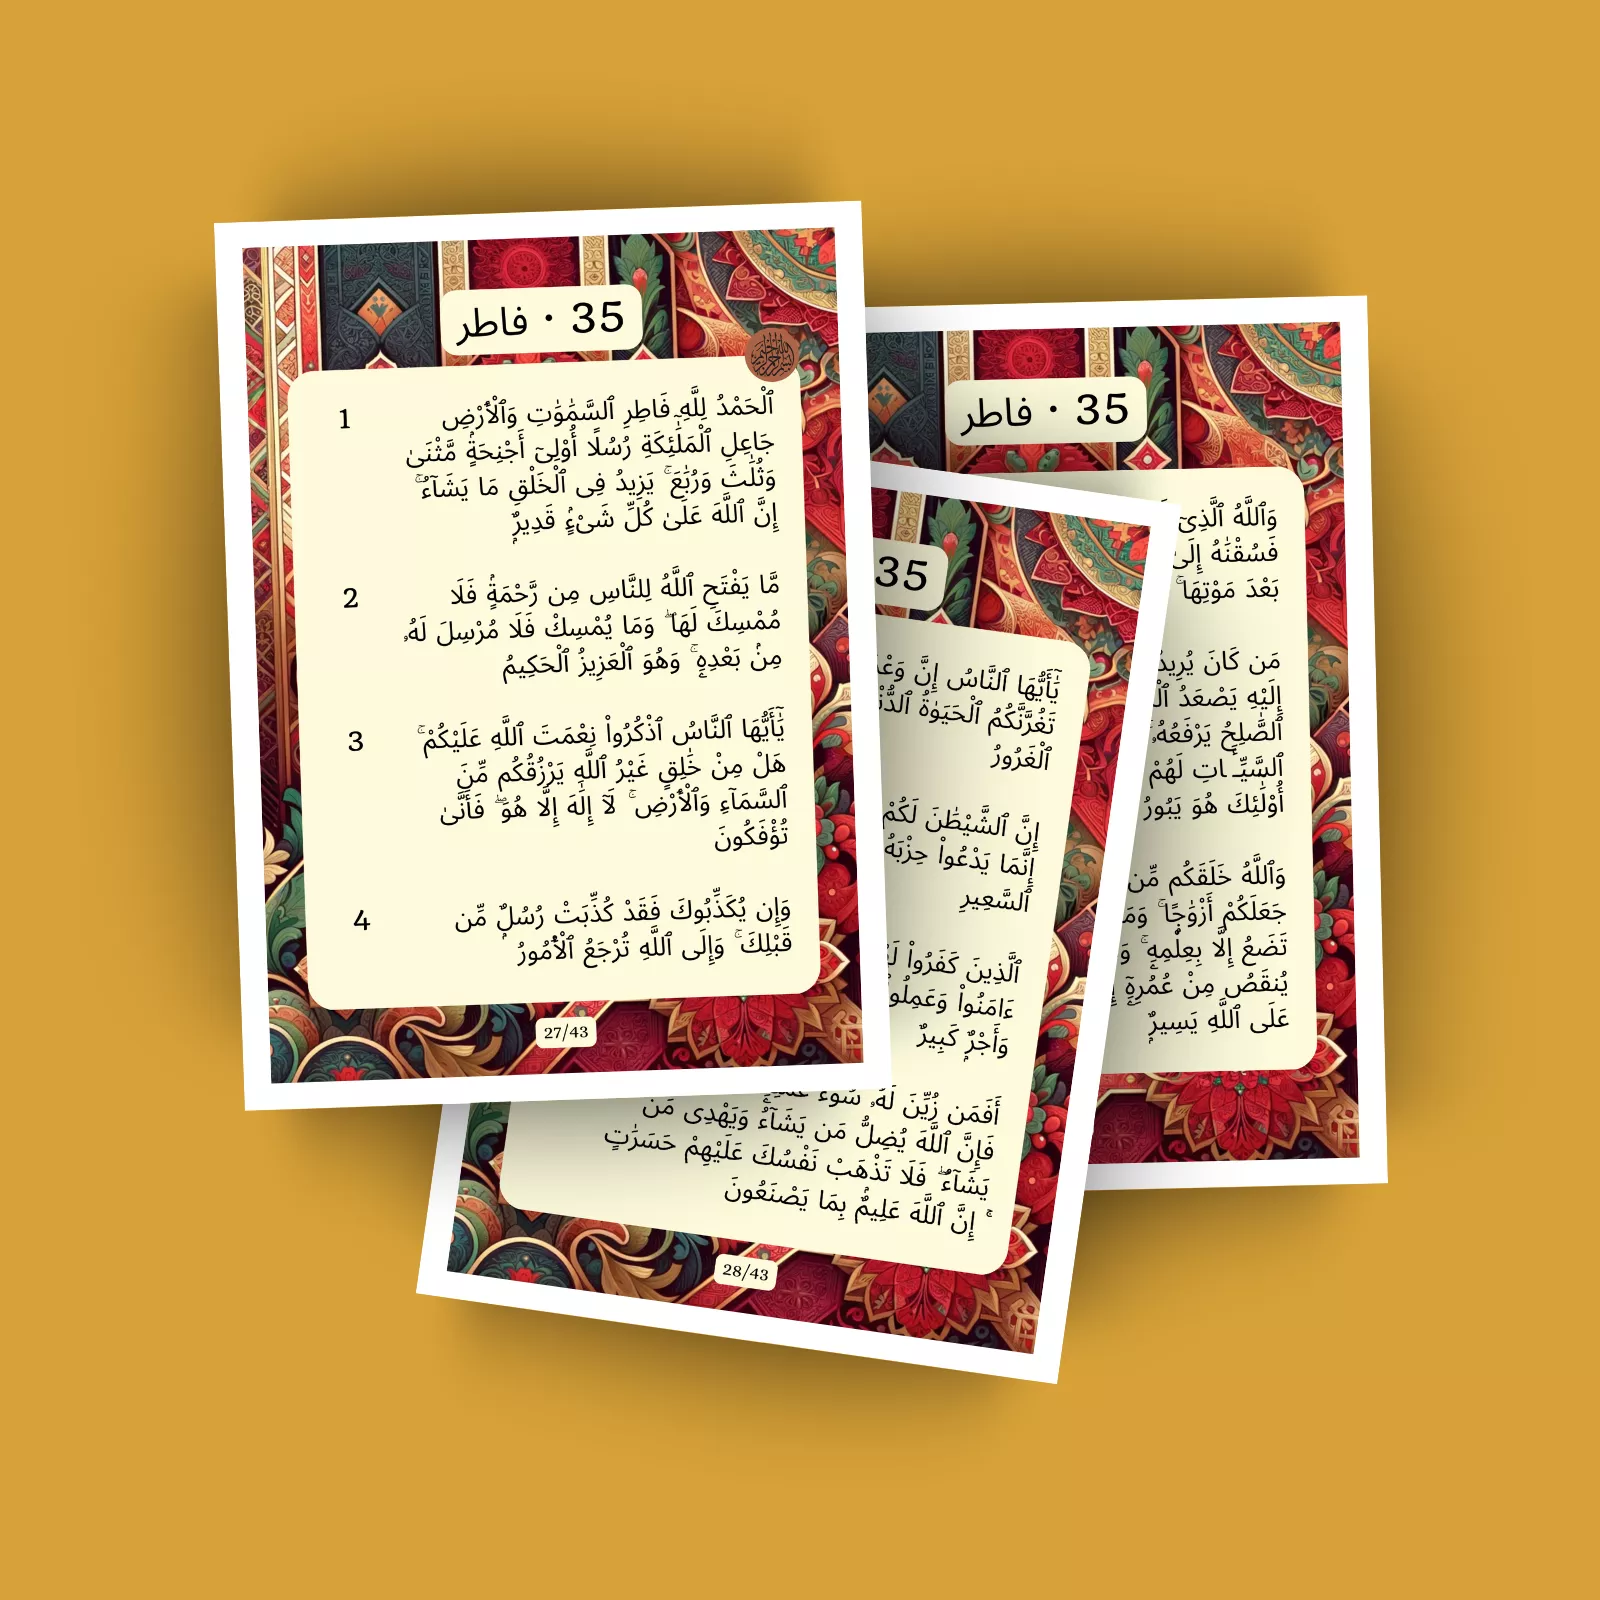 35 · فاطر
1
ٱلْحَمْدُ لِلَّهِ فَاطِرِ ٱلسَّمَٰوَٰتِ وَٱلْأَرْضِ
جَاعِلِ ٱلْمَلَٰٓئِكَةِ رُسُلًا أُو۟لِىٓ أَجْنِحَةٍۢ مَّثْنَىٰ
وَثُلَٰثَ وَرُبَٰعَ ۚ يَزِيدُ فِى ٱلْخَلْقِ مَا يَشَآءُ ۚ
إِنَّ ٱللَّهَ عَلَىٰ كُلِّ شَىْءٍۢ قَدِيرٌۭ
2
مَّا يَفْتَحِ ٱللَّهُ لِلنَّاسِ مِن رَّحْمَةٍۢ فَلَا
مُمْسِكَ لَهَا ۖ وَمَا يُمْسِكْ فَلَا مُرْسِلَ لَهُۥ
مِنۢ بَعْدِهِۦ ۚ وَهُوَ ٱلْعَزِيزُ ٱلْحَكِيمُ
3
يَٰٓأَيُّهَا ٱلنَّاسُ ٱذْكُرُوا۟ نِعْمَتَ ٱللَّهِ عَلَيْكُمْ ۚ
هَلْ مِنْ خَٰلِقٍ غَيْرُ ٱللَّهِ يَرْزُقُكُم مِّنَ
ٱلسَّمَآءِ وَٱلْأَرْضِ ۚ لَآ إِلَٰهَ إِلَّا هُوَ ۖ فَأَنَّىٰ
تُؤْفَكُونَ
4
وَإِن يُكَذِّبُوكَ فَقَدْ كُذِّبَتْ رُسُلٌۭ مِّن
قَبْلِكَ ۚ وَإِلَى ٱللَّهِ تُرْجَعُ ٱلْأُمُورُ
27/43
35
يَٰٓأَيُّهَا ٱلنَّاسُ إِنَّ
تَغُرَّنَّكُمُ ٱلْحَيَوٰةُ
ٱلْغَرُورُ
إِنَّ ٱلشَّيْطَٰنَ لَكُمْ
إِنَّمَا يَدْعُوا۟ حِزْبَهُ
ٱلسَّعِيرِ
ٱلَّذِينَ كَفَرُوا۟
ءَامَنُوا۟
وَأَجْرٌۭ كَبِيرٌ
أَفَمَن زُيِّنَ لَهُۥ سُوٓءُ
فَإِنَّ ٱللَّهَ يُضِلُّ مَن يَشَآءُ وَيَهْدِى مَن
يَشَآءُ ۖ فَلَا تَذْهَبْ نَفْسُكَ عَلَيْهِمْ حَسَرَٰتٍ
ۚ إِنَّ ٱللَّهَ عَلِيمٌۢ بِمَا يَصْنَعُونَ
28/43
35 · فاطر
وَٱللَّهُ ٱلَّذِىٓ
فَسُقْنَٰهُ إِلَىٰ
بَعْدَ مَوْتِهَا ۚ
مَن كَانَ يُرِيدُ
إِلَيْهِ يَصْعَدُ
ٱلصَّٰلِحُ يَرْفَعُهُۥ
ٱلسَّيِّـَٔاتِ لَهُمْ
أُو۟لَٰٓئِكَ هُوَ يَبُورُ
وَٱللَّهُ خَلَقَكُم مِّن
جَعَلَكُمْ أَزْوَٰجًۭا ۚ
تَضَعُ إِلَّا بِعِلْمِهِۦ ۚ
يُنقَصُ مِنْ عُمُرِهِۦٓ
عَلَى ٱللَّهِ يَسِيرٌۭ